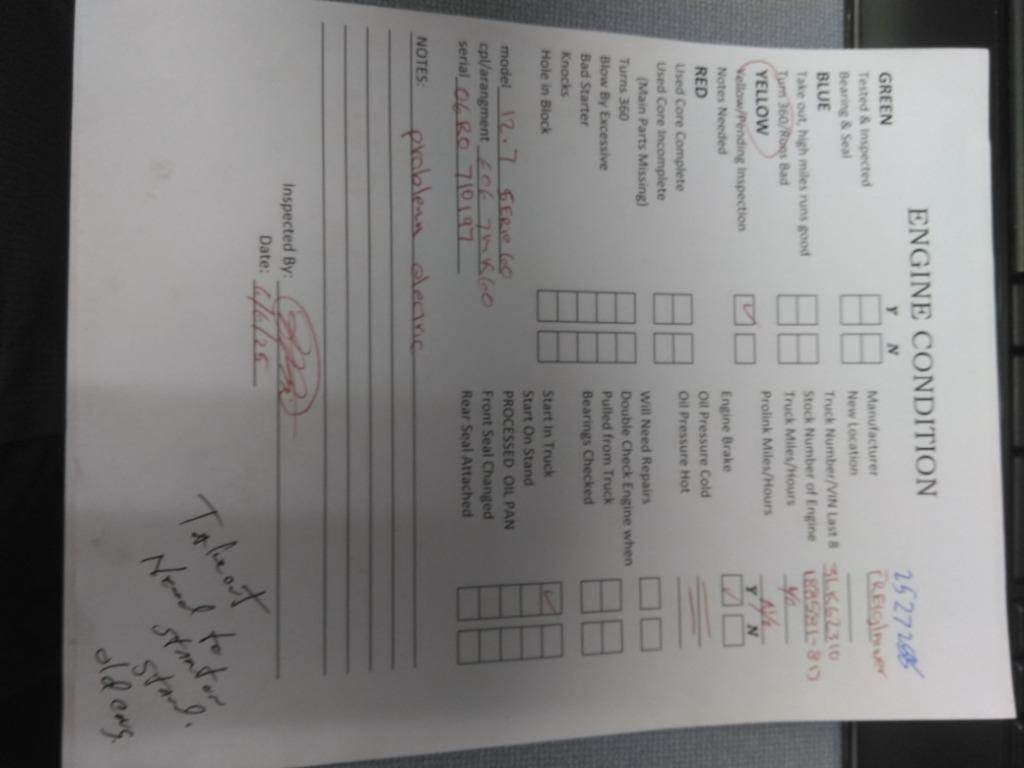 ENGINE CONDITION
25272685
Y N
GREEN
Tested & Inspected
Bearing & Seal
BLUE
Take out, high miles runs good
Turns 360/Rods Bad
YELLOW
Yellow/Pending Inspection
Notes Needed
RED
Used Core Complete
Used Core Incomplete
(Main Parts Missing)
Turns 360
Blow By Excessive
Bad Starter
Knocks
Hole in Block
model 12.7 SERIE 60
cpl/arangment 6067MK60
serial 06R0 710197
Manufacturer
New Location
Truck Number/VIN Last 8
Stock Number of Engine
Truck Miles/Hours
Prolink Miles/Hours
Y N
Engine Brake
Oil Pressure Cold
Oil Pressure Hot
Will Need Repairs
Double Check Engine when
Pulled from Truck
Bearings Checked
Start In Truck
Start On Stand
PROCESSED OIL PAN
Front Seal Changed
Rear Seal Attached
NOTES: problem
Inspected By:
Date:
Takeout
Need to